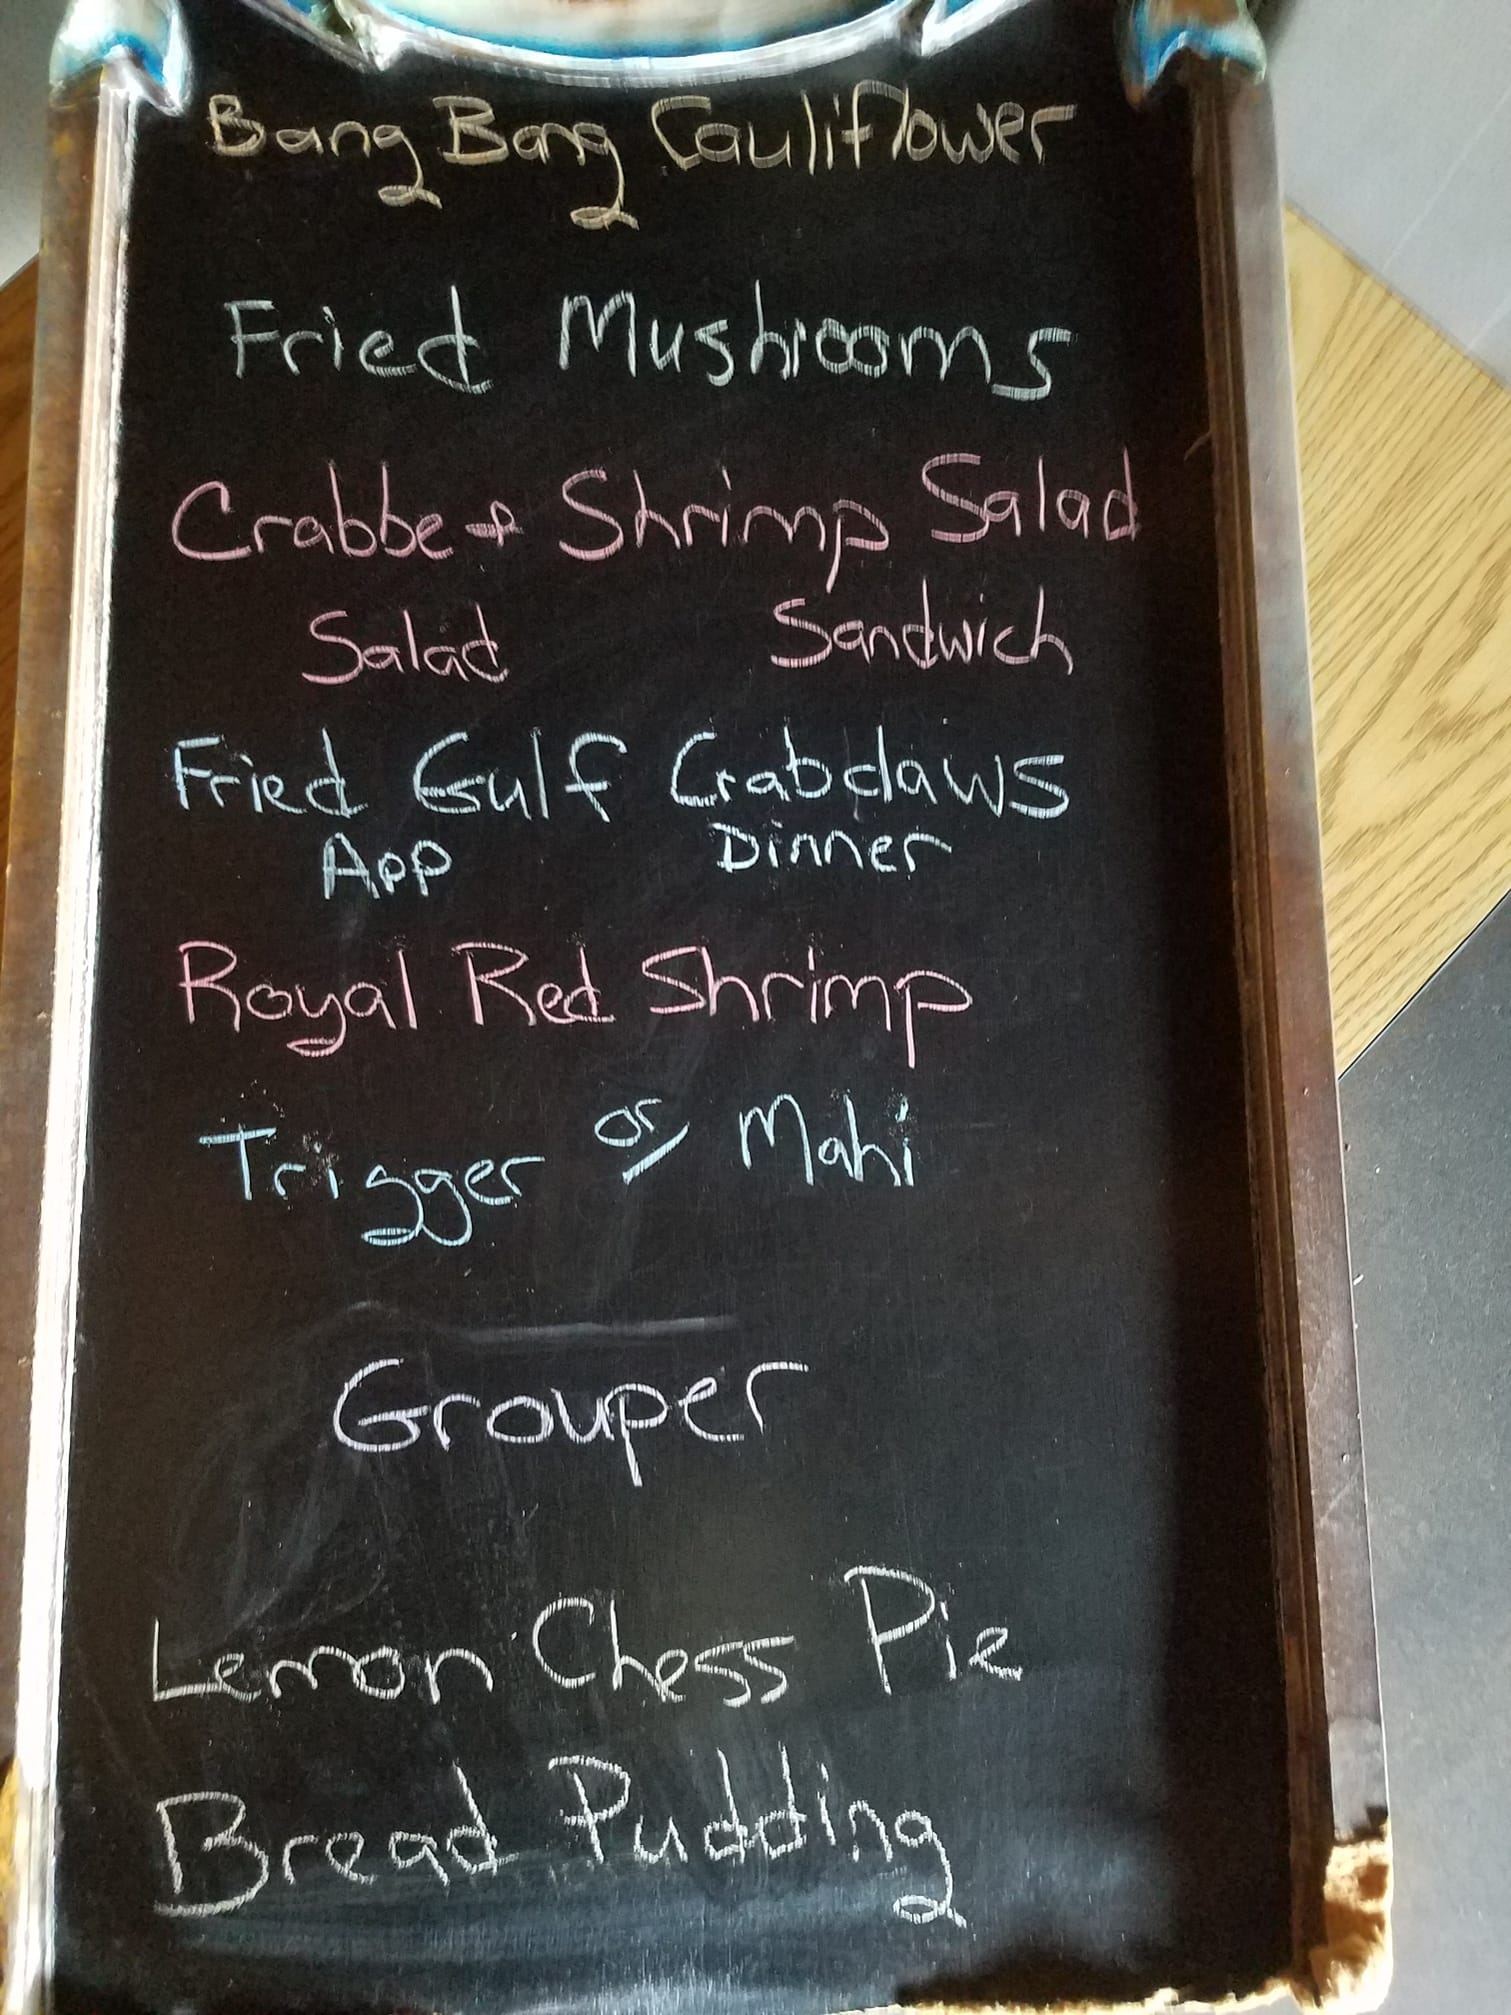 Bang Bang Cauliflower
Fried Mushrooms
Crabbe + Shrimp Salad
Salad Sandwich
Fried Gulf Crabclaws
App Dinner
Royal Red Shrimp
Trigger or Mahi
Grouper
Lemon Chess Pie
Bread Pudding